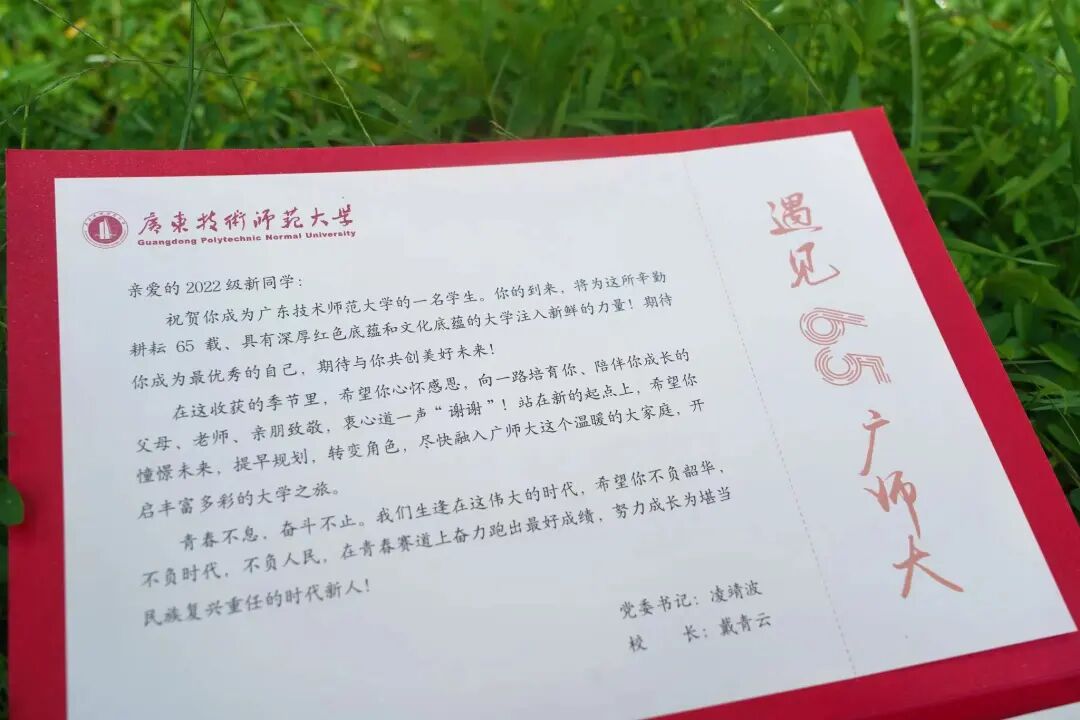 廣東技術師范大学
Guangdong Polytechnic Normal University
亲爱的 2022 级新同学：
祝贺你成为广东技术师范大学的一名学生。你的到来，将为这所辛勤
耕耘 65 载、具有深厚红色底蕴和文化底蕴的大学注入新鲜的力量！期待
你成为最优秀的自己，期待与你共创美好未来！
在这收获的季节里，希望你心怀感恩，向一路培育你、陪伴你成长的
父母、老师、亲朋致敬，衷心道一声“谢谢”！站在新的起点上，希望你
憧憬未来，提早规划，转变角色，尽快融入广师大这个温暖的大家庭，开
启丰富多彩的大学之旅。
青春不息，奋斗不止。我们生逢在这伟大的时代，希望你不负韶华，
不负时代，不负人民，在青春赛道上奋力跑出最好成绩，努力成长为堪当
民族复兴重任的时代新人！
党委书记：凌靖波
校 长：戴青云
遇见 65 广师大